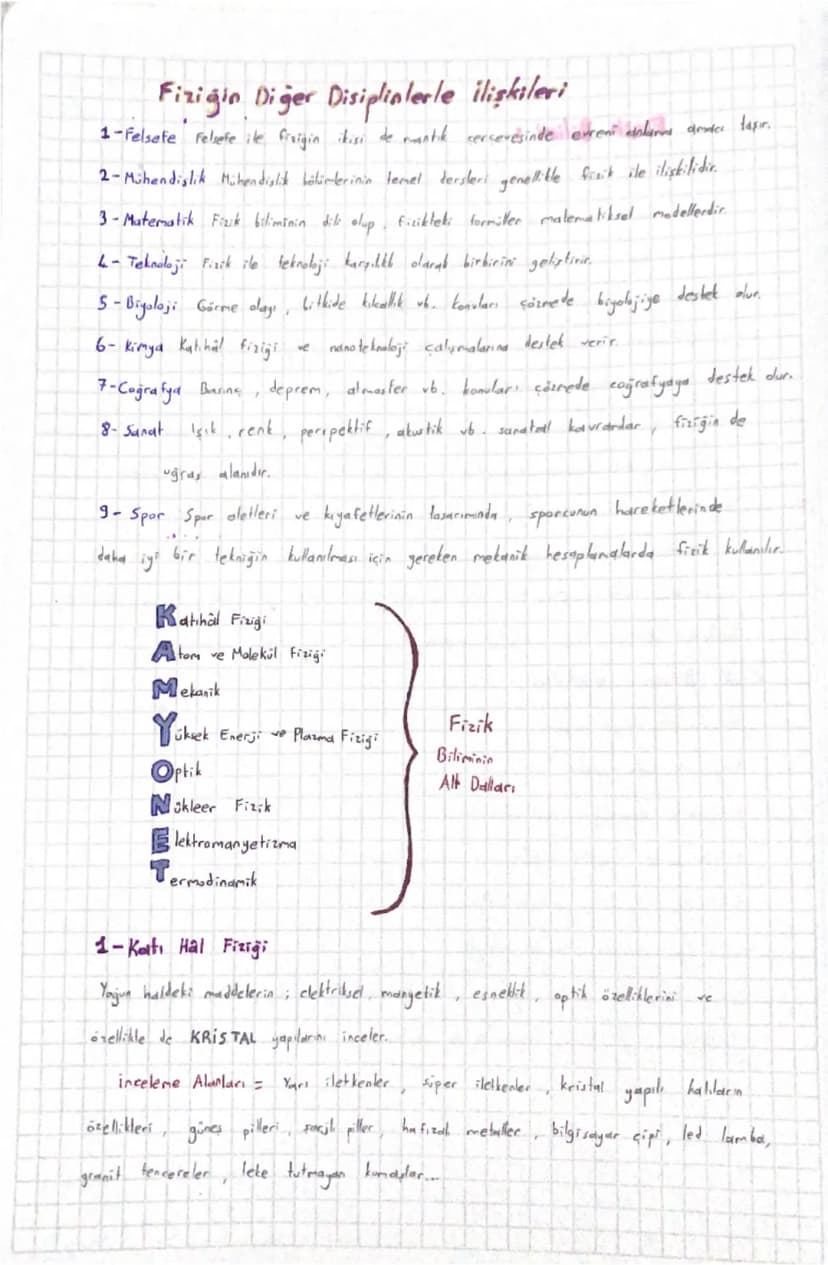 Fiziğin Diğer Disiplinlerle ilişkileri
1-Felsefe Felsefe ile fiziğin ikisi de mantık çerçevesinde evreni anlama amacı taşır.
2-Mühendislik Mühendislik bölümlerinin temel dersleri genellikle fizik ile ilişkilidir.
3-Matematik Fizik biliminin dili olup, fizikteki formüller matematiksel modellerdir.
4-Teknoloji Fizik ile teknoloji karşılıklı olarak birbirini geliştirir.
5-Biyoloji Görme olayı, bitkide kılcallık vb. konuları çözmede biyolojiye destek olur.
6-Kimya Katıhâl fiziği ve nanoteknoloji çalışmalarına destek verir.
7-Coğrafya Basınç, deprem, atmosfer vb. konuları çözmede coğrafyaya destek olur.
8-Sanat Işık, renk, perspektif, akustik vb. sanatsal kavramlar, fiziğin de
uğraş alanıdır.
9-Spor Spor aletleri ve kıyafetlerinin tasarımında, sporcunun hareketlerinde
daha iyi bir tekniğin kullanılması için gereken mekanik hesaplamalarda fizik kullanılır.
Katıhâl Fiziği
Atom ve Molekül Fiziği
Mekanik
Yüksek Enerji ve Plazma Fiziği
Optik
Nükleer Fizik
Elektromanyetizma
Termodinamik
Fizik
Biliminin
Alt Dalları
1-Katı Hâl Fiziği
Yoğun haldeki maddelerin; elektriksel, manyetik, esneklik, optik özelliklerini ve
özellikle de KRİSTAL yapılarını inceler.
inceleme Alanları = Yarı iletkenler, süper iletkenler, kristal yapılı katıların
özellikleri, güneş pilleri, şarjlı piller, hafızalı metaller, bilgisayar çipi, led lamba,
granit tencereler, leke tutmayan kumaşlar...